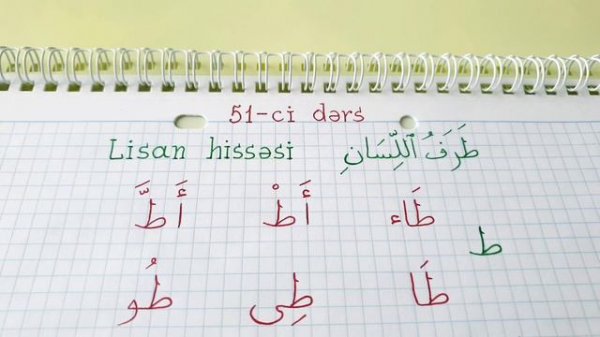 51-ci dərs
Lisan hissəsi طَرَفُ ٱللِّسَانِ
طَاء أَطْ أَطَّ
ط
طَا طِى طُو